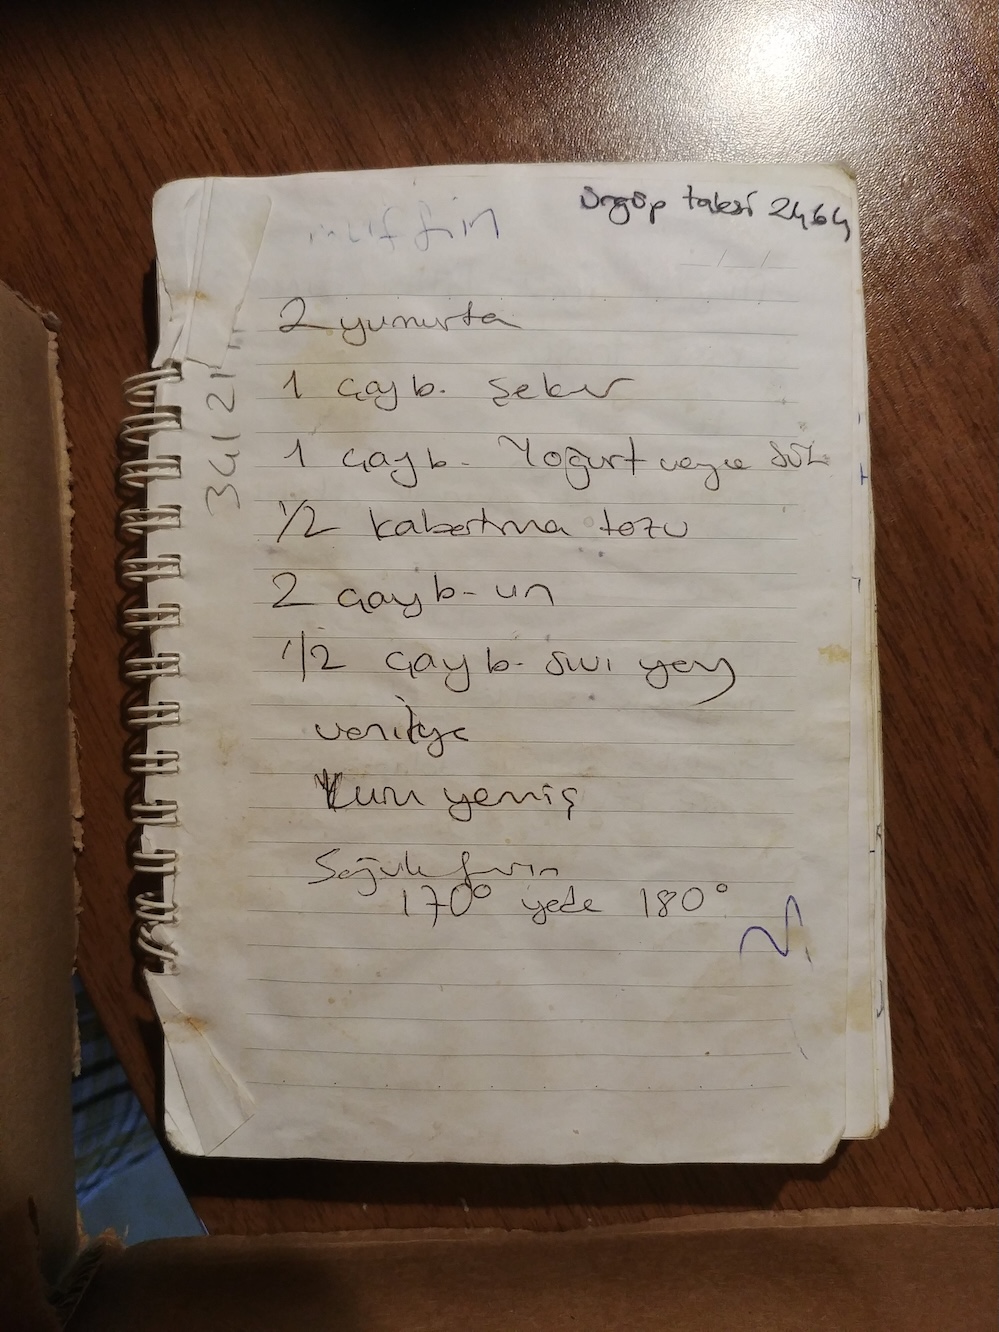 ürgüp taksi 2464
muffin
2 yumurta
1 çay b. şeker
1 çay b. Yoğurt veya süt
1/2 kabartma tozu
2 çay b. un
1/2 çay b. sıvı yağ
vanilya
Kuru yemiş
Soğuk fırın
170° yada 180°